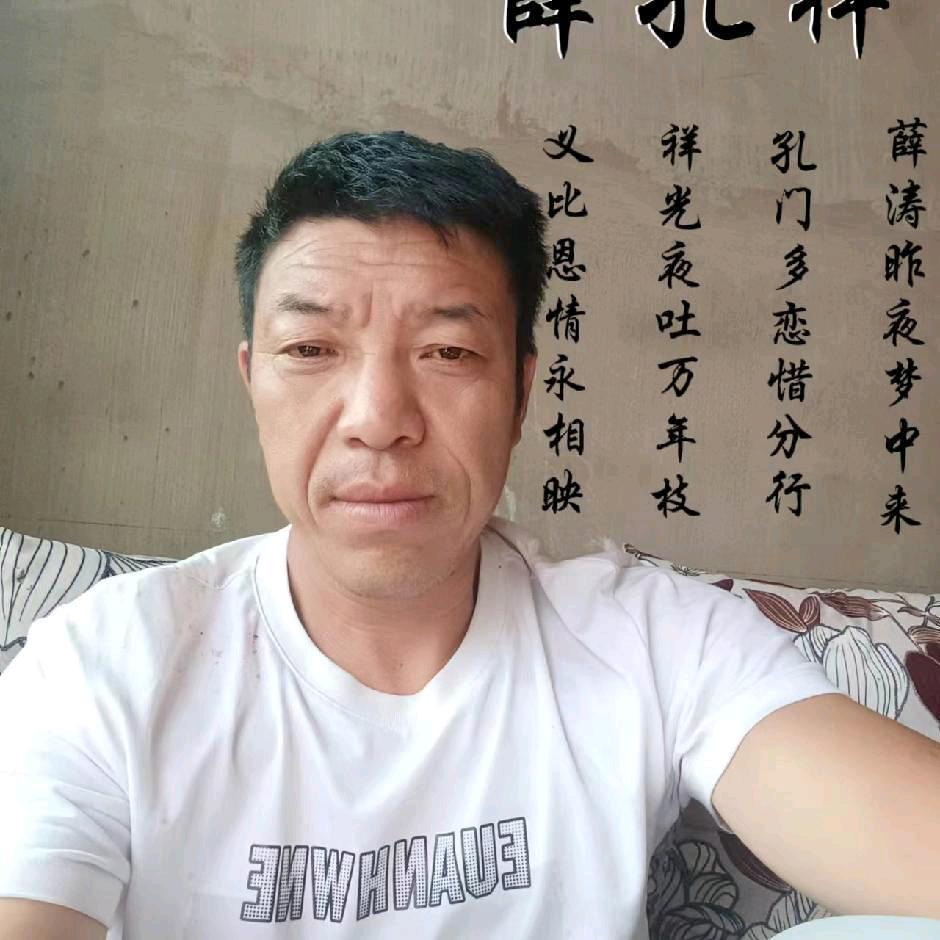 薛孔祥
薛涛昨夜梦中来
孔门多恋惜分行
祥光夜吐万年枝
义比恩情永相映
EUANHWNE